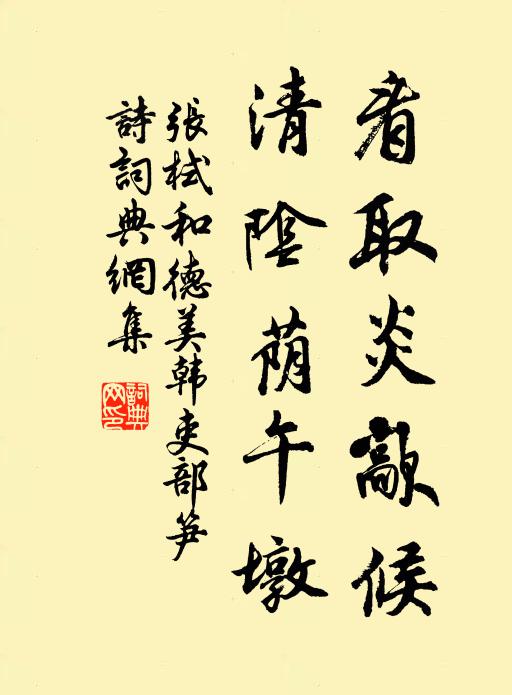 看取炎歊候
清陰荫午墩
張栻和德美韓吏部笋
詩詞典網集
詞典网印